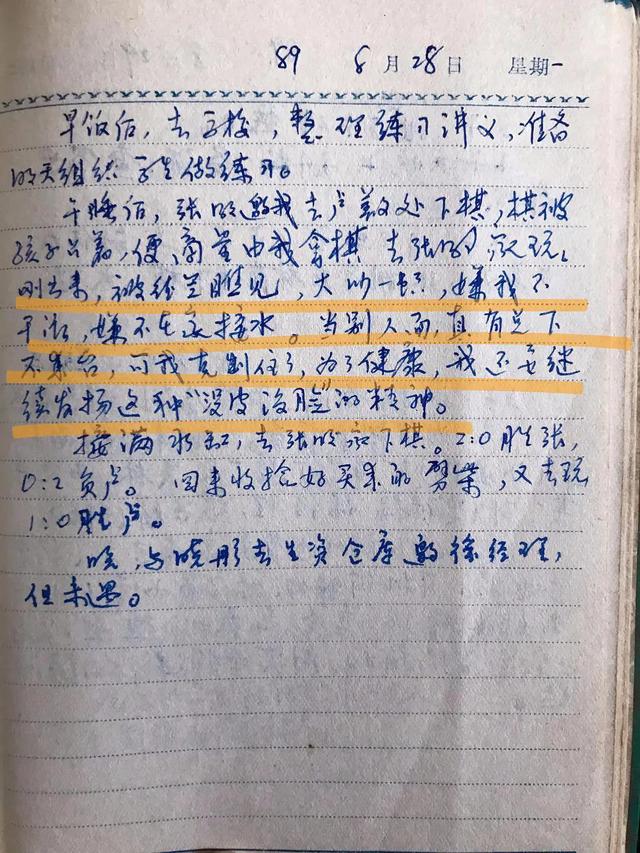 89 8月28日 星期一
早饭后,去三校,整理练习讲义,准备
明天组织学生做练习。
午睡后,张明邀我去卢处下棋,棋被
孩子占着,便商量由我拿棋去张明家玩。
刚出来,被 兰瞧见,大吵一顿,嫌我不
干活,嫌不在家接水。当别人面,真有点下
不来台,可我克制住了,为了健康,我还要继
续发扬这种“没皮没脸”的精神。
接满水缸,去张明家下棋。2:0胜张,
0:2负卢。回来收拾好买来的劈柴,又去玩
1:0胜卢。
晚,与晓彤去生资仓库邀徐经理,
但未遇。